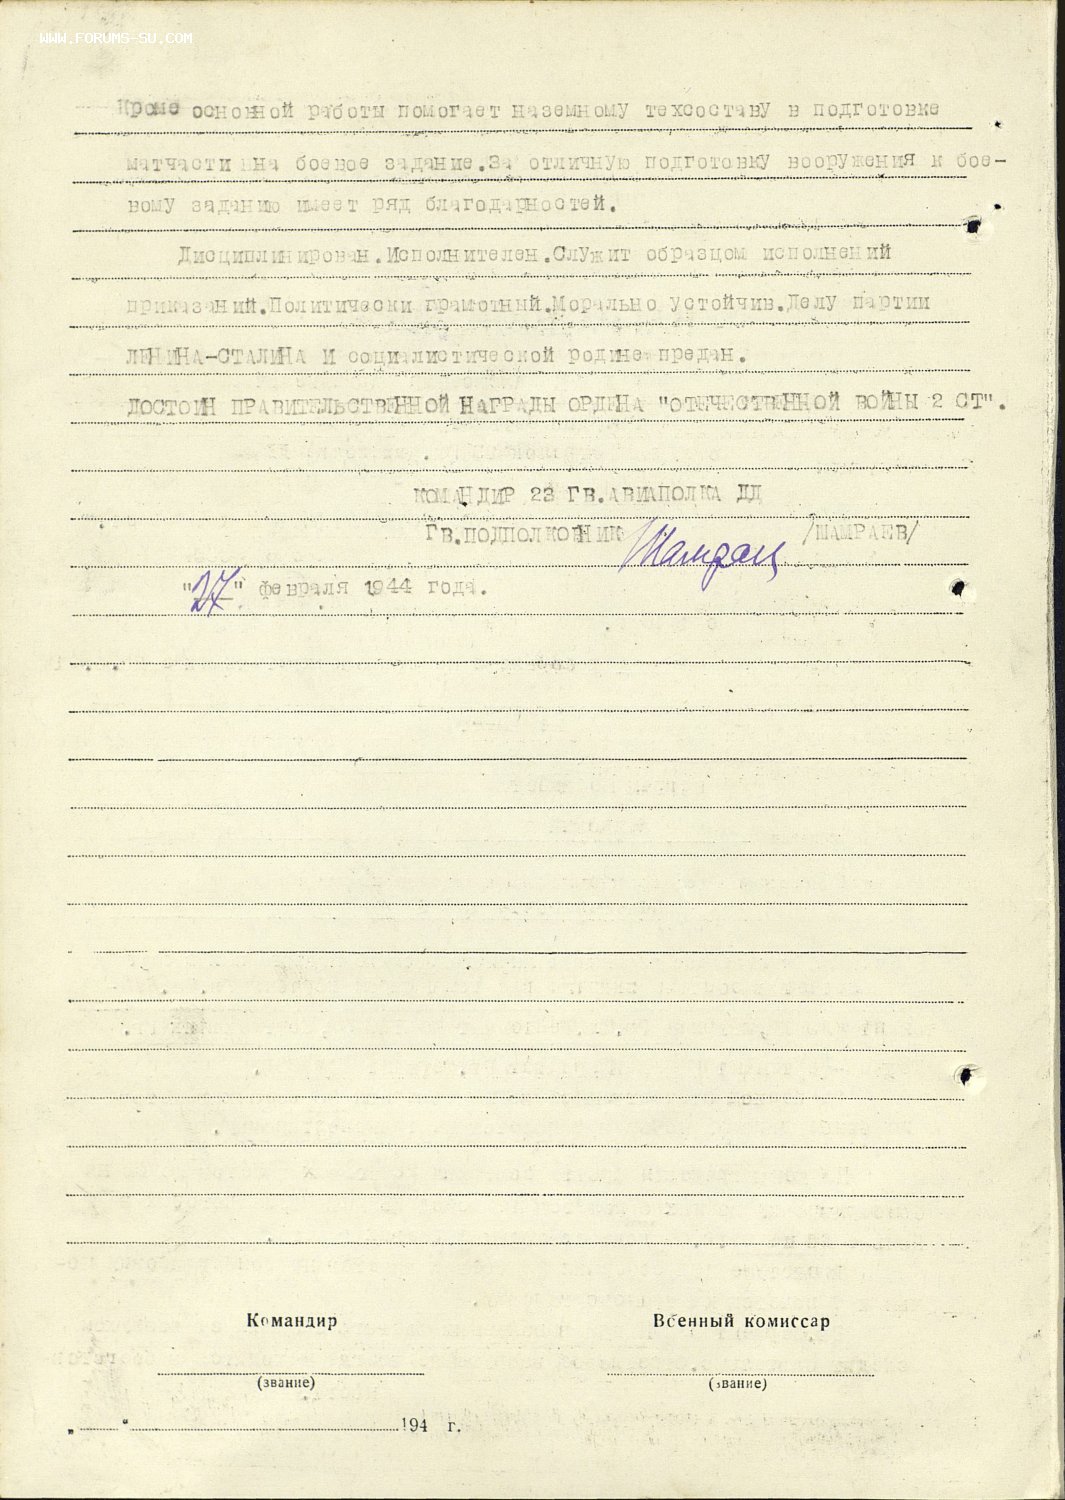 WWW.FORUMS-SU.COM
Кроме основной работы помогает наземному техсоставу в подготовке
матчасти на боевое задание.За отличную подготовку вооружения к бое-
вому заданию имеет ряд благодарностей.
Дисциплинирован.Исполнителен.Служит образцом исполнений
приказаний.Политически грамотный.Морально устойчив.Делу партии
ЛЕНИНА-СТАЛИНА И социалистической родине предан.
ДОСТОИН ПРАВИТЕЛЬСТВЕННОЙ НАГРАДЫ ОРДЕНА "ОТЕЧЕСТВЕННОЙ ВОЙНЫ 2 СТ".
КОМАНДИР 23 ГВ.АВИАПОЛКА ДД
ГВ.ПОДПОЛКОВНИК Шамраев /ШАМРАЕВ/
"27" февраля 1944 года.
Командир Военный комиссар
(звание) (звание)
„ “ 194 г.